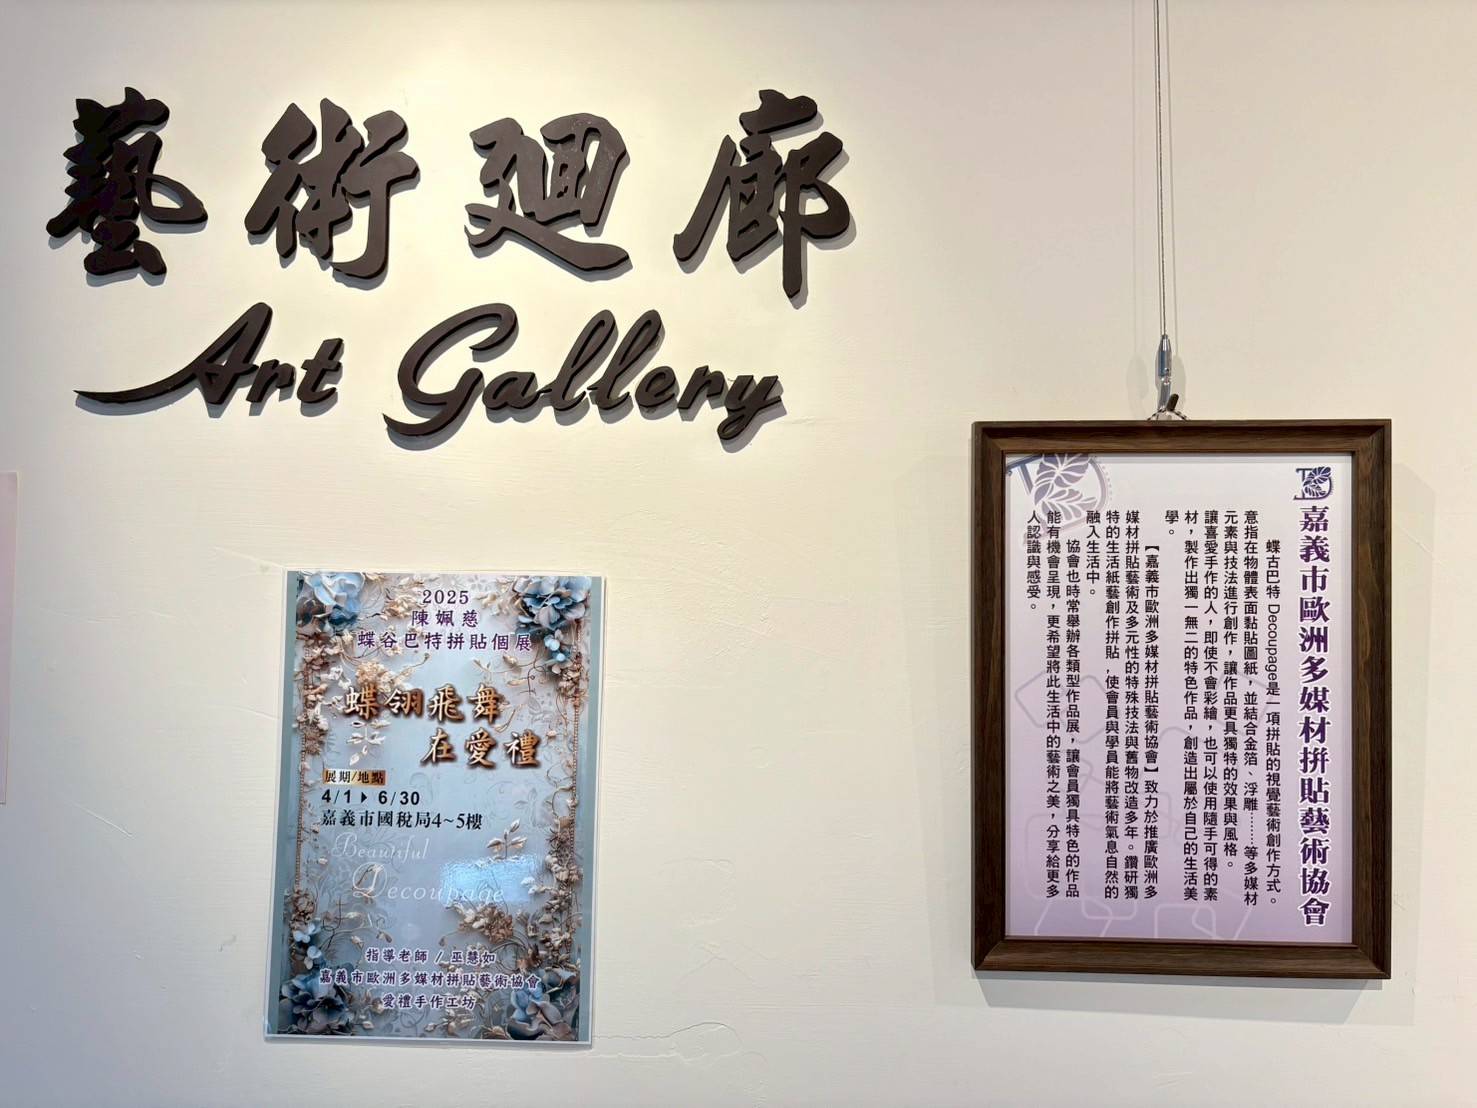 藝術廻廊
Art Gallery
2025
陳姵慈
蝶谷巴特拼貼個展
蝶翎飛舞
在愛禮
展期/地點
4/1 ▶ 6/30
嘉義市國稅局4~5樓
Beautiful
Decoupage
指導老師 / 巫慧如
嘉義市歐洲多媒材拼貼藝術協會
愛禮手作工坊
嘉義市歐洲多媒材拼貼藝術協會
蝶古巴特 Decoupage是一項拼貼的視覺藝術創作方式。
意指在物體表面黏貼圖紙，並結合金箔、浮雕……等多媒材
元素與技法進行創作，讓作品更具獨特的效果與風格。
讓喜愛手作的人，即使不會彩繪，也可以使用隨手可得的素
材，製作出獨一無二的特色作品，創造出屬於自己的生活美
學。
【嘉義市歐洲多媒材拼貼藝術協會】致力於推廣歐洲多
媒材拼貼藝術及多元性的特殊技法與舊物改造多年。鑽研獨
特的生活紙藝創作拼貼，使會員與學員能將藝術氣息自然的
融入生活中。
協會也時常舉辦各類型作品展，讓會員獨具特色的作品
能有機會呈現，更希望將此生活中的藝術之美，分享給更多
人認識與感受。